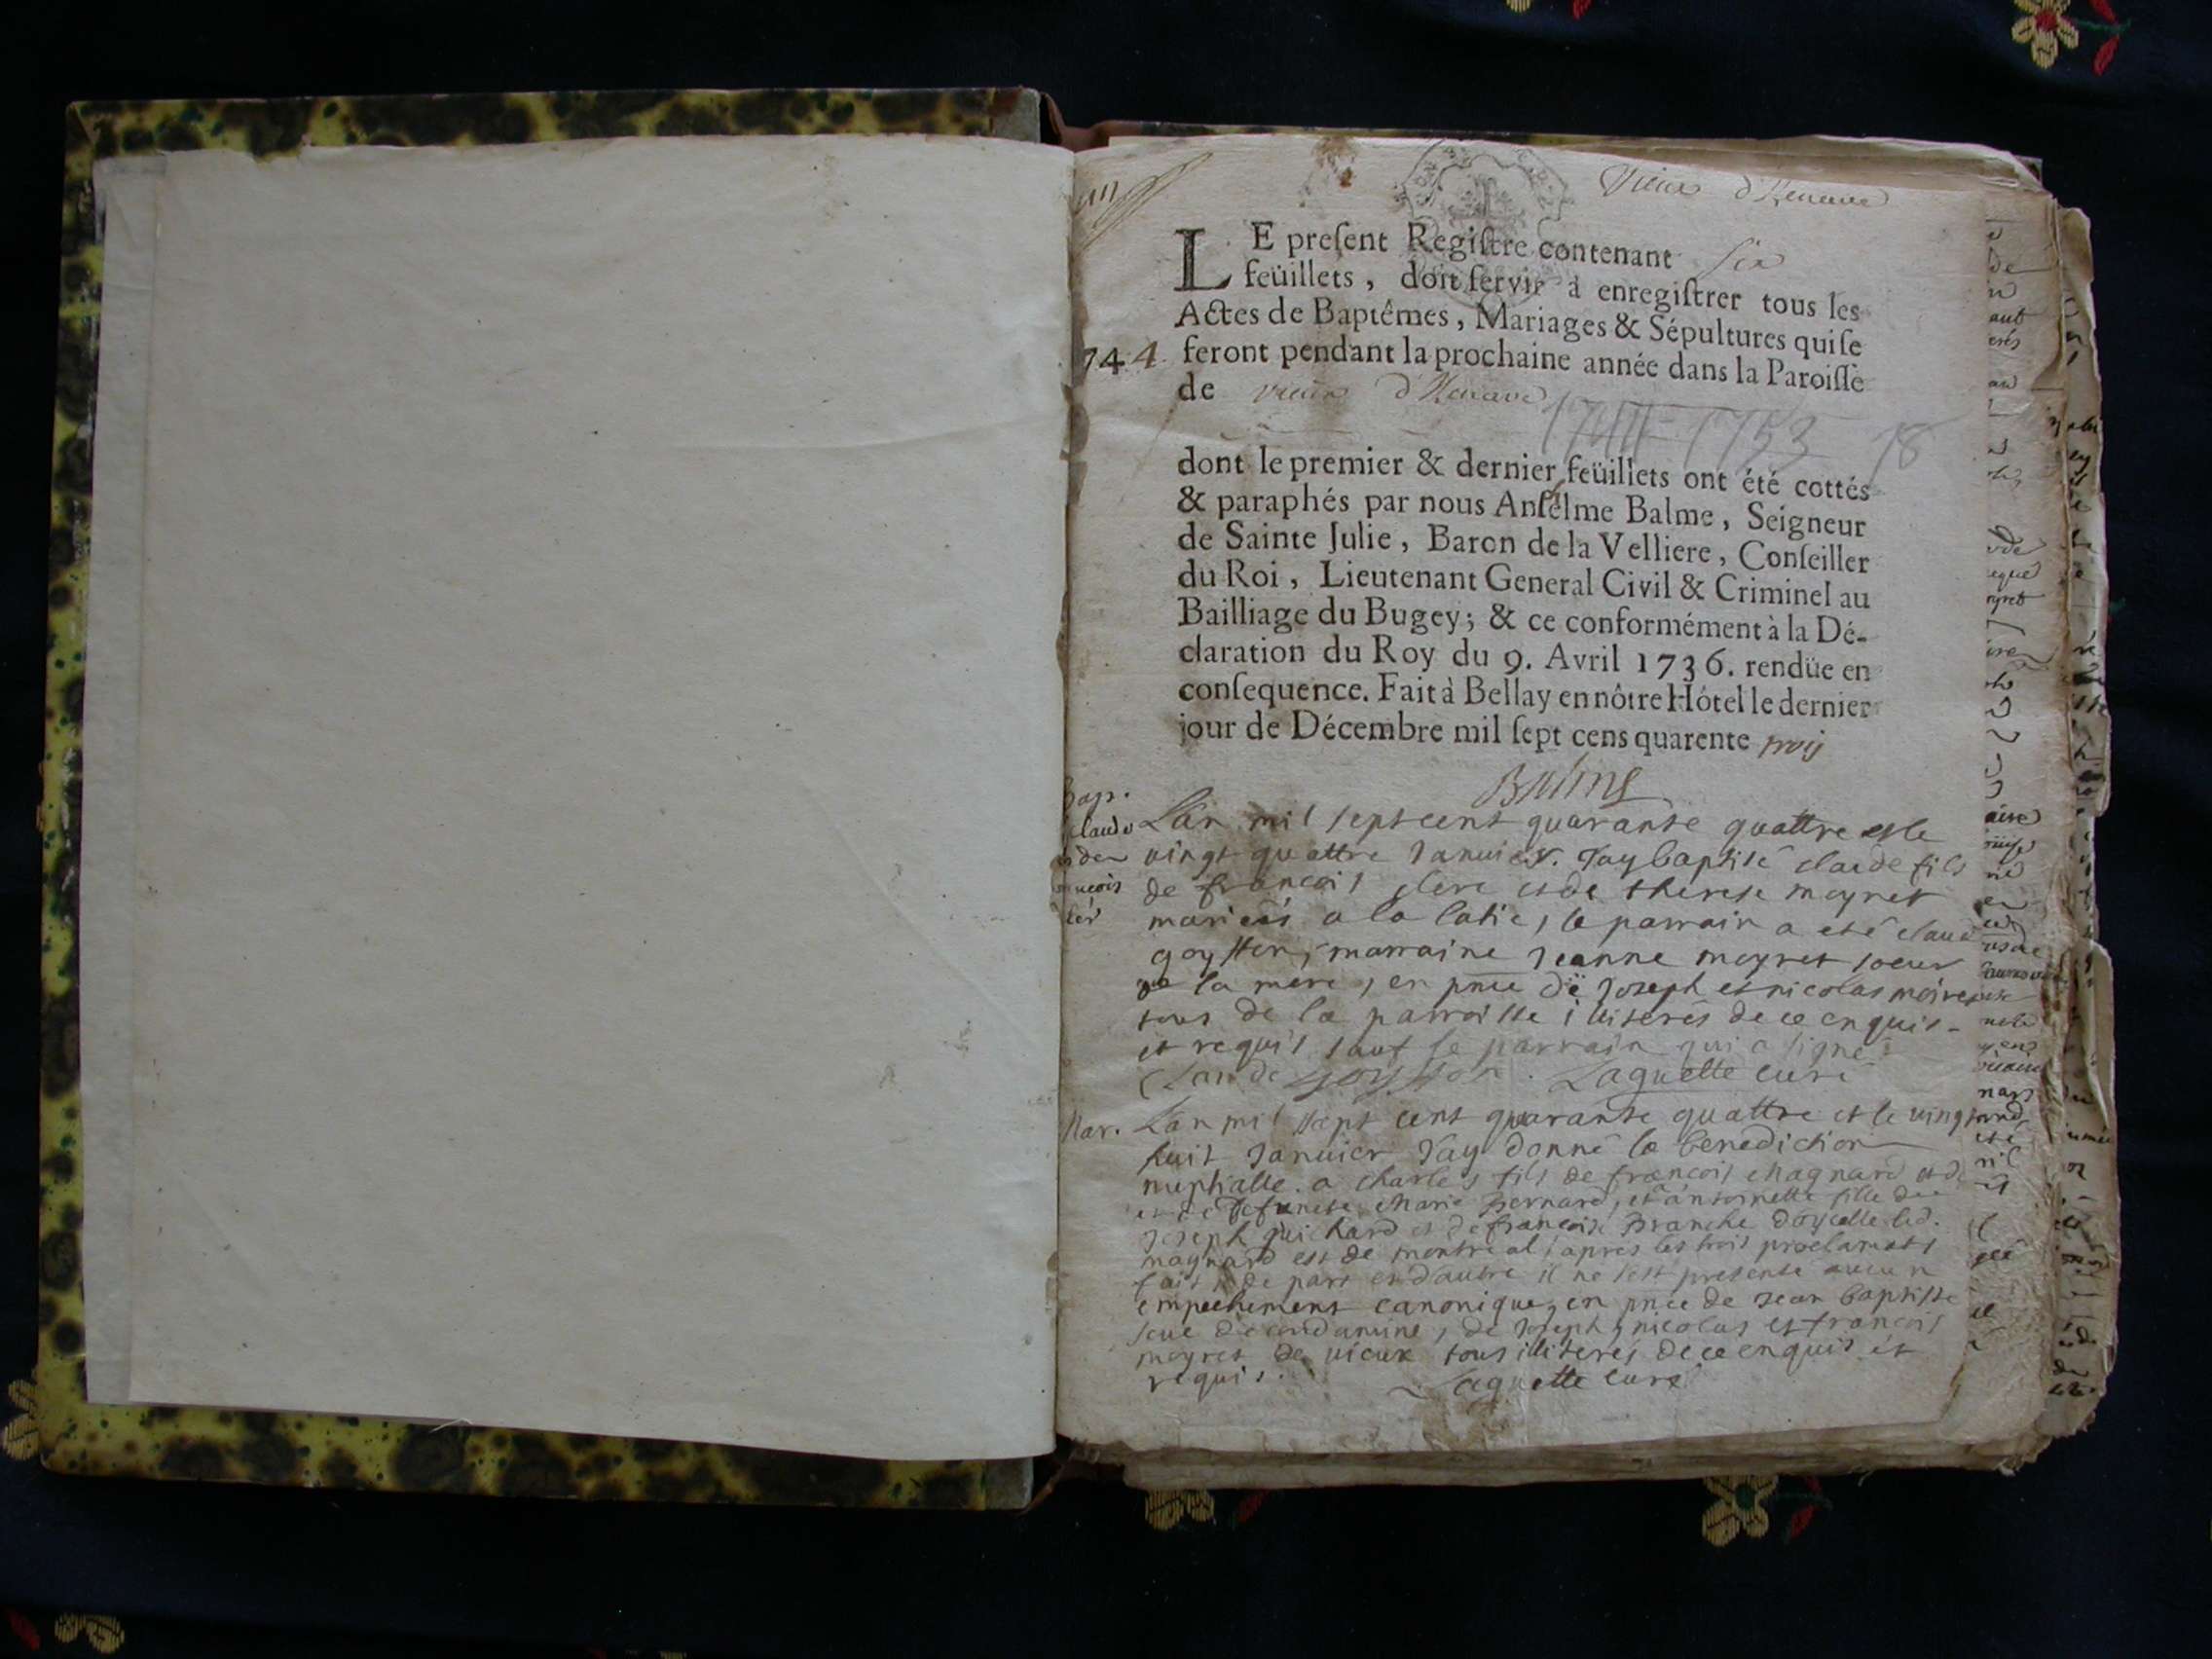 Vieux d'Henave
LE preſent Regiſtre contenant six
feüillets, doit ſervir à enregiſtrer tous les
Actes de Baptêmes, Mariages & Sépultures qui ſe
744 feront pendant la prochaine année dans la Paroiſſe
de vieux d'Henave
1744-1753 18
dont le premier & dernier feüillets ont été cottés
& paraphés par nous Anſelme Balme, Seigneur
de Sainte Julie, Baron de la Velliere, Conſeiller
du Roi, Lieutenant General Civil & Criminel au
Bailliage du Bugey; & ce conformément à la Dé-
claration du Roy du 9. Avril 1736. rendüe en
conſequence. Fait à Bellay en nôtre Hôtel le dernier
jour de Décembre mil ſept cens quarente trois
Balme
Bap.
claude
L'an mil sept cent quarante quattre et le
vingt quattre Januier. J'ay baptisé claude fils
de francois clerc et de therese moyret
mariés a la latie, le parrain a eté claude
goyffon, marraine Jeanne moyret soeur
de la mere, en pnce de Joseph et nicolas moiret
tous de la parroisse illiterés de ce enquis
et requis sauf le parrain qui a signé
Claude goyffon. Laguette curé
Mar. L'an mil sept cent quarante quattre et le vingt
huit Januier J'ay donné la benediction
nuptialle a charles fils de francois Magnard et de
et de defuncte Marie Bernard, et a antoinette fille de
Joseph Guichard et de francoise Branche d'oycelle led.
magnard est de montreal, apres les trois proclamats
faits de part et d'autre il ne s'est presenté aucun
empechement canonique, en pnce de Jean baptiste
de condamine, de Joseph, nicolas et francois
moyret de vieux tous illiterés de ce enquis et
requis. Laguette curé